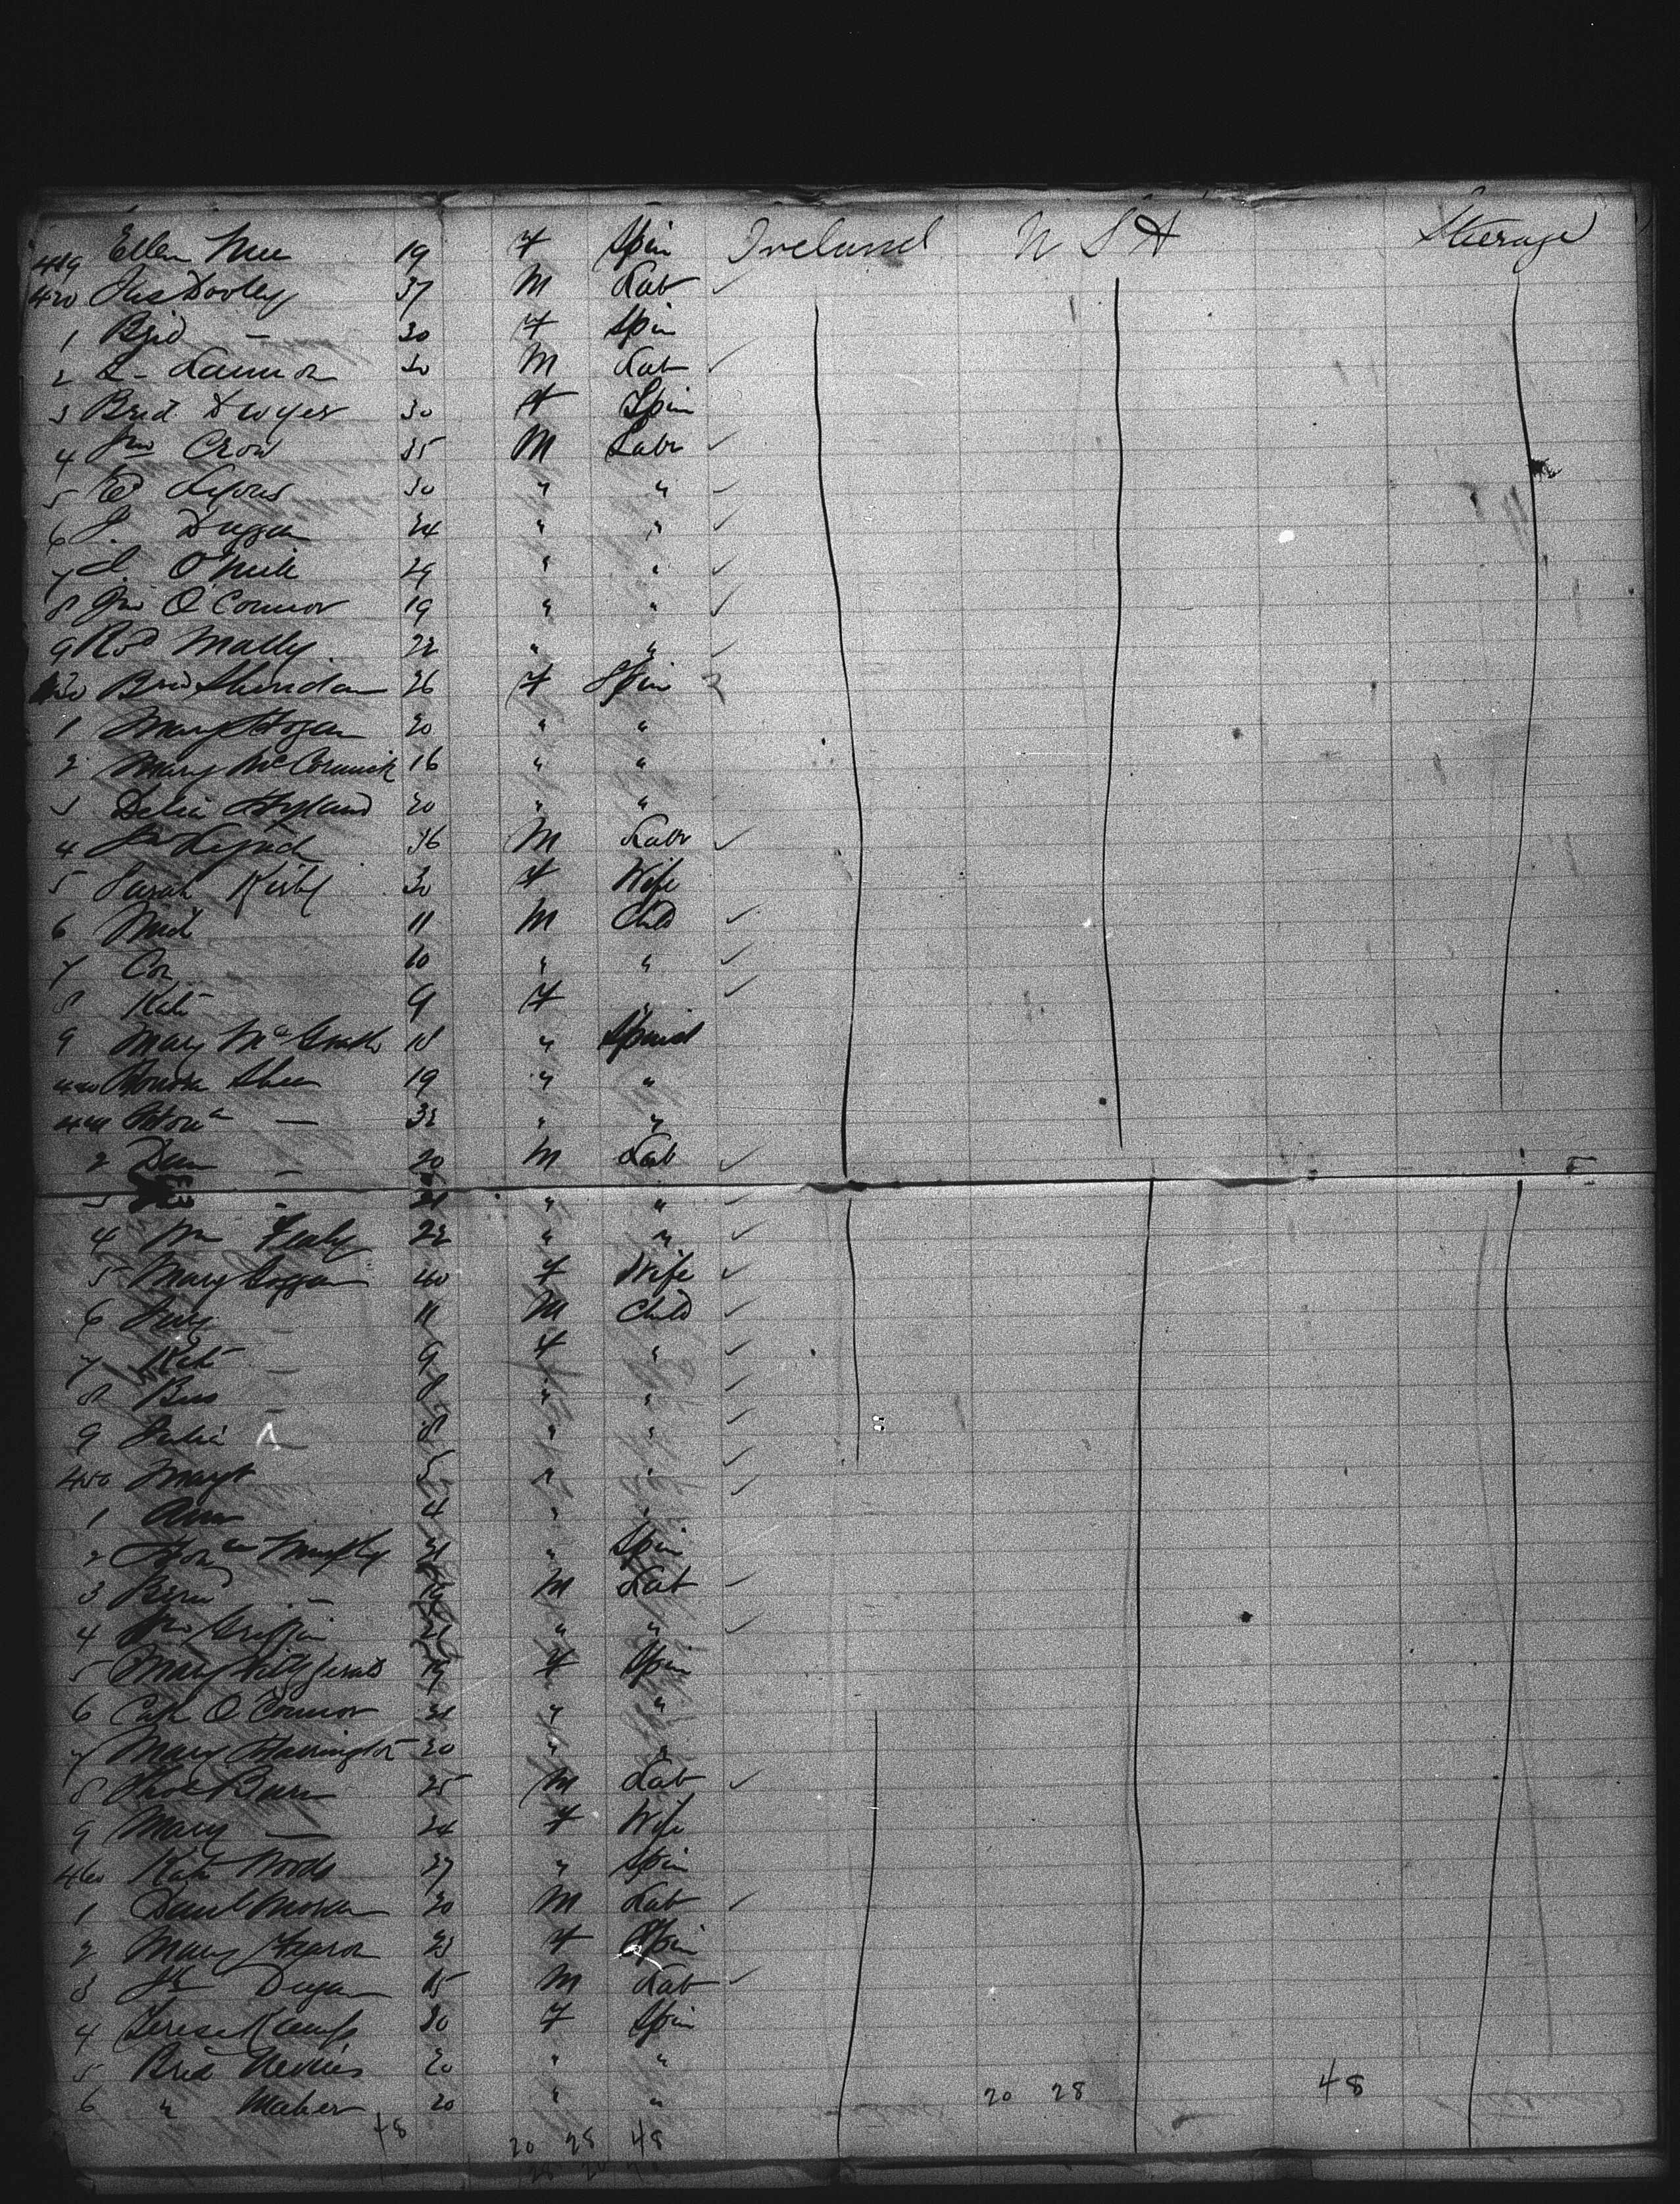 419 Ellen Nee 19 F Spin Ireland U S A Steerage
420 Jas Dooly 37 M Lab ✓
1 Brid — 30 F Spin
2 Lannon 30 M Lab ✓
3 Brid Dwyer 30 F Spin
4 Jno Crow 35 M Labr ✓
5 Ed Lyons 30 " " ✓
6 J. Duggan 24 " " ✓
7 O'Neil 29 " " ✓
8 Jno O'Connor 19 " " ✓
9 Rod Mally 22 " " ✓
Brid Sheridan 26 F Spin
1 Mary Hogan 20 " "
2 Mary McCormick 16 " "
3 Delia Hyland 20 " "
4 Lynch 36 M Labr ✓
5 Sarah Kirby 30 F Wife
6 Mich 11 M Child ✓
7 Con 10 " " ✓
8 Kate 9 F " ✓
9 Mary McGrath 18 " Spins
440 Shea 19 " "
441 Hona — 32 " "
2 Dan — 20 M Lab ✓
3 - " " ✓
4 Wm 22 " " ✓
5 Mary 40 F Wife ✓
6 — 11 M Child ✓
7 Kate — 9 F " ✓
8 — 8 " " ✓
9 Julia — 8 " " ✓
450 Margt 5 " " ✓
1 Ann 4 " " ✓
2 Hona Murphy 21 " Spin
3 — 19 M Lab ✓
4 Jno Griffin 21 " " ✓
5 Mary Fitzgerald 19 F Spin
6 Cath O'Connor 21 " "
7 Mary Harrington 20 " "
8 Thos 25 M Lab ✓
9 Mary — 24 F Wife
460 Kate Woods 27 " Spin
1 Danl Moran 30 M Lab ✓
2 Mary Fearon 23 F Spin
3 Dugan 15 M Lab ✓
4 30 F Spin
5 Brid 20 " "
6 " Maher 20 " "
20 28 48
48 20 28 48